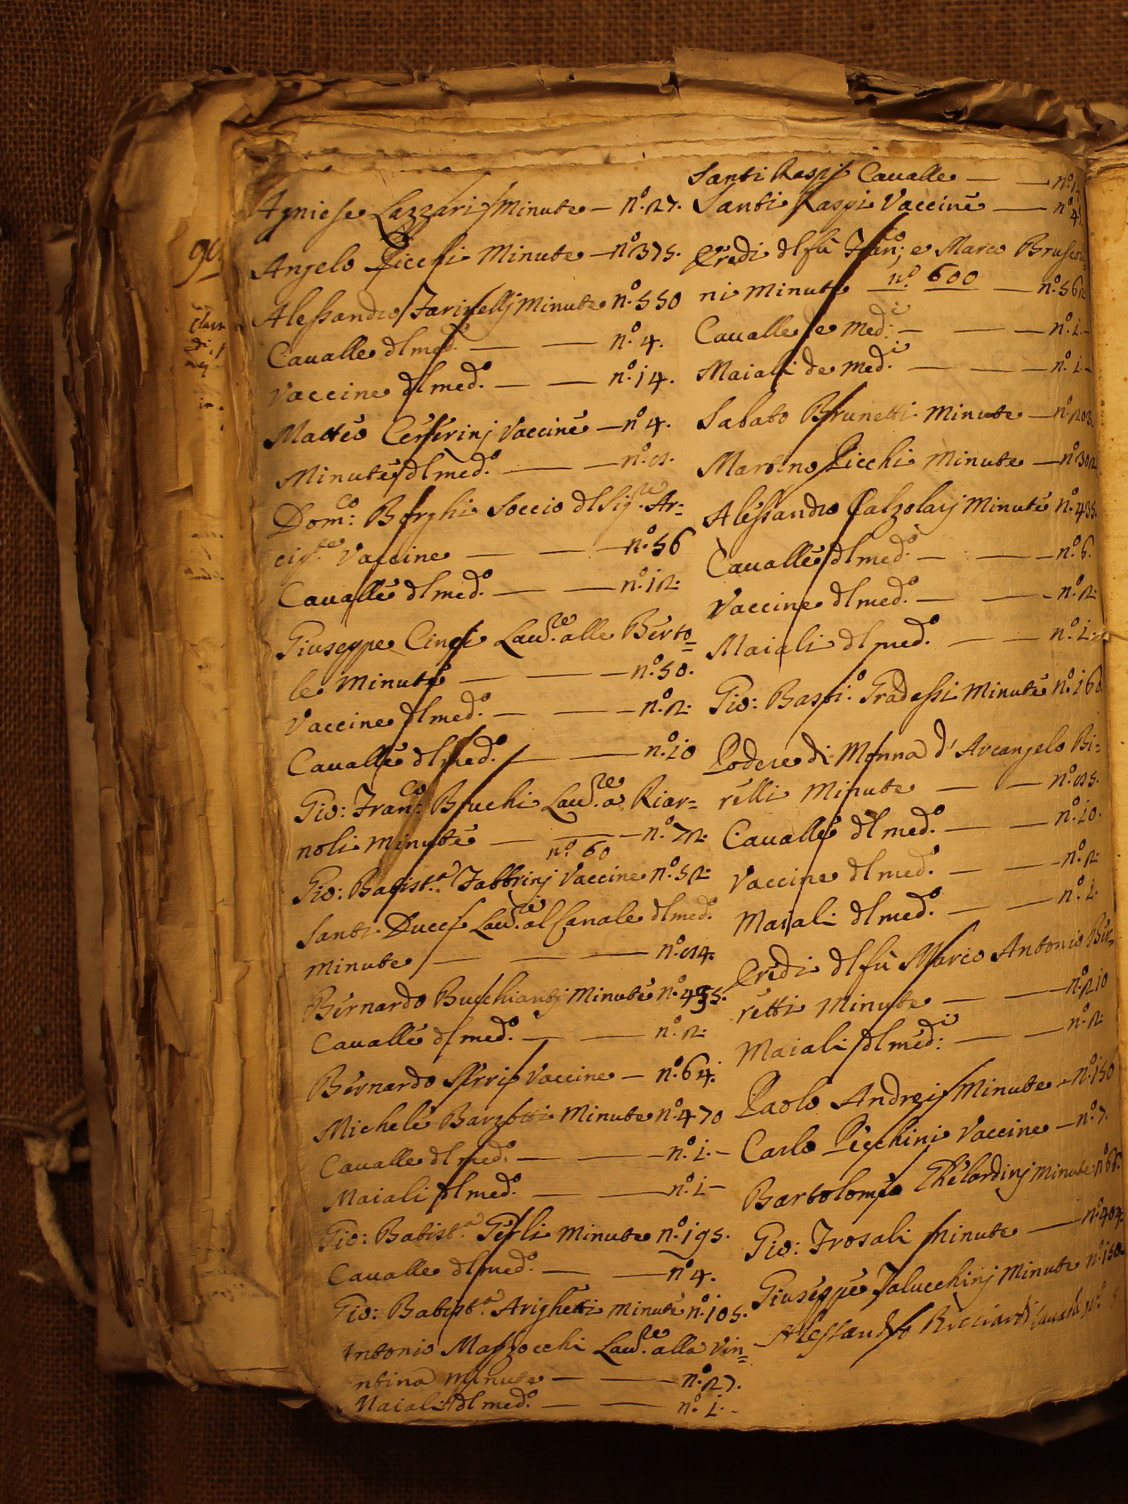 Agniese Lazzari Minute — nº. 27.
Angelo Picchi Minute — nº 375.
Alessandro Farinelli Minute nº. 550
Caualle dl med.º — — nº. 4.
Vaccine dl med.º — — nº. 14.
Matteo Cerferinj Vaccine — nº 4.
Minute dl med.º — — nº.
Dom.co Borghi Soccio dl Sig.re Ar=
Vaccine — — nº. 56
Caualle dl med.º — — nº. 12.
Giuseppe Cinci Lau.re alle Berto=
le Minute — — nº. 50.
Vaccine dl med.º — — nº. 2.
Caualle dl med.º — — nº. 10
Gio: Fran.co Bruchi Lau.re a Riar=
noli minute — nº. 72.
nº 60
Gio: Batist.a Fabbrinj Vaccine nº. 52.
Santi Lau.re al Canale dl med.º
minute — — — nº.
Bernardo Buschiantj Minute nº.
Caualle dl med.º — — nº. 2.
Bernardo Vaccine — nº. 64.
Michele Barzotti Minute nº. 470
Caualle dl med.º — — nº. 1. —
Maiali dl med.º — — nº. 1 —
Gio: Batist.a Minute nº. 195.
Caualle dl med.º — — nº 4.
Gio: Batist.a Arighetti Minute nº. 105.
Antonio Mazzocchi Lau.re alla Vin=
minute — — nº. 27.
Maiali dl med.º — — nº. 1. -
Santi Raspi Caualle — — nº.
Santi Raspi Vaccine — nº 4
Eredi dl fù Fran.co e Marco
ni Minute nº 600 — nº. 56
Caualle de med.i — — nº. 1. —
Maiali de med.i — — nº. 1 —
Sabato Brunetti Minute — nº 203.
Martino Picchi Minute — nº 302
Alessandro Calzolarj Minute nº. 435.
Caualle dl med.º — — nº. 6.
Vaccine dl med.º — — nº. 2.
Maiali dl med.º — — nº. 1.
Gio: Batti.º Gradassi Minute nº. 160
Podere di Monna d'Arcangelo Bi=
relli Minute — —
Caualle dl med.º — — nº. 10.
Vaccine dl med.º — — nº. 2.
Maiali dl med.º — — nº. 1.
Eredi dl fù Marco Antonio Bir=
retti Minute — — nº. 210
Maiali dl med.i — — nº. 2.
Paolo Andreis Minute — nº. 150
Carlo Picchini Vaccine — nº. 7.
Bartolomeo Ghelardinj Minute nº
Gio: Frosali minute — nº. 404.
Giuseppe Salucchinj Minute nº. 150.
Alessandro Ricciardi